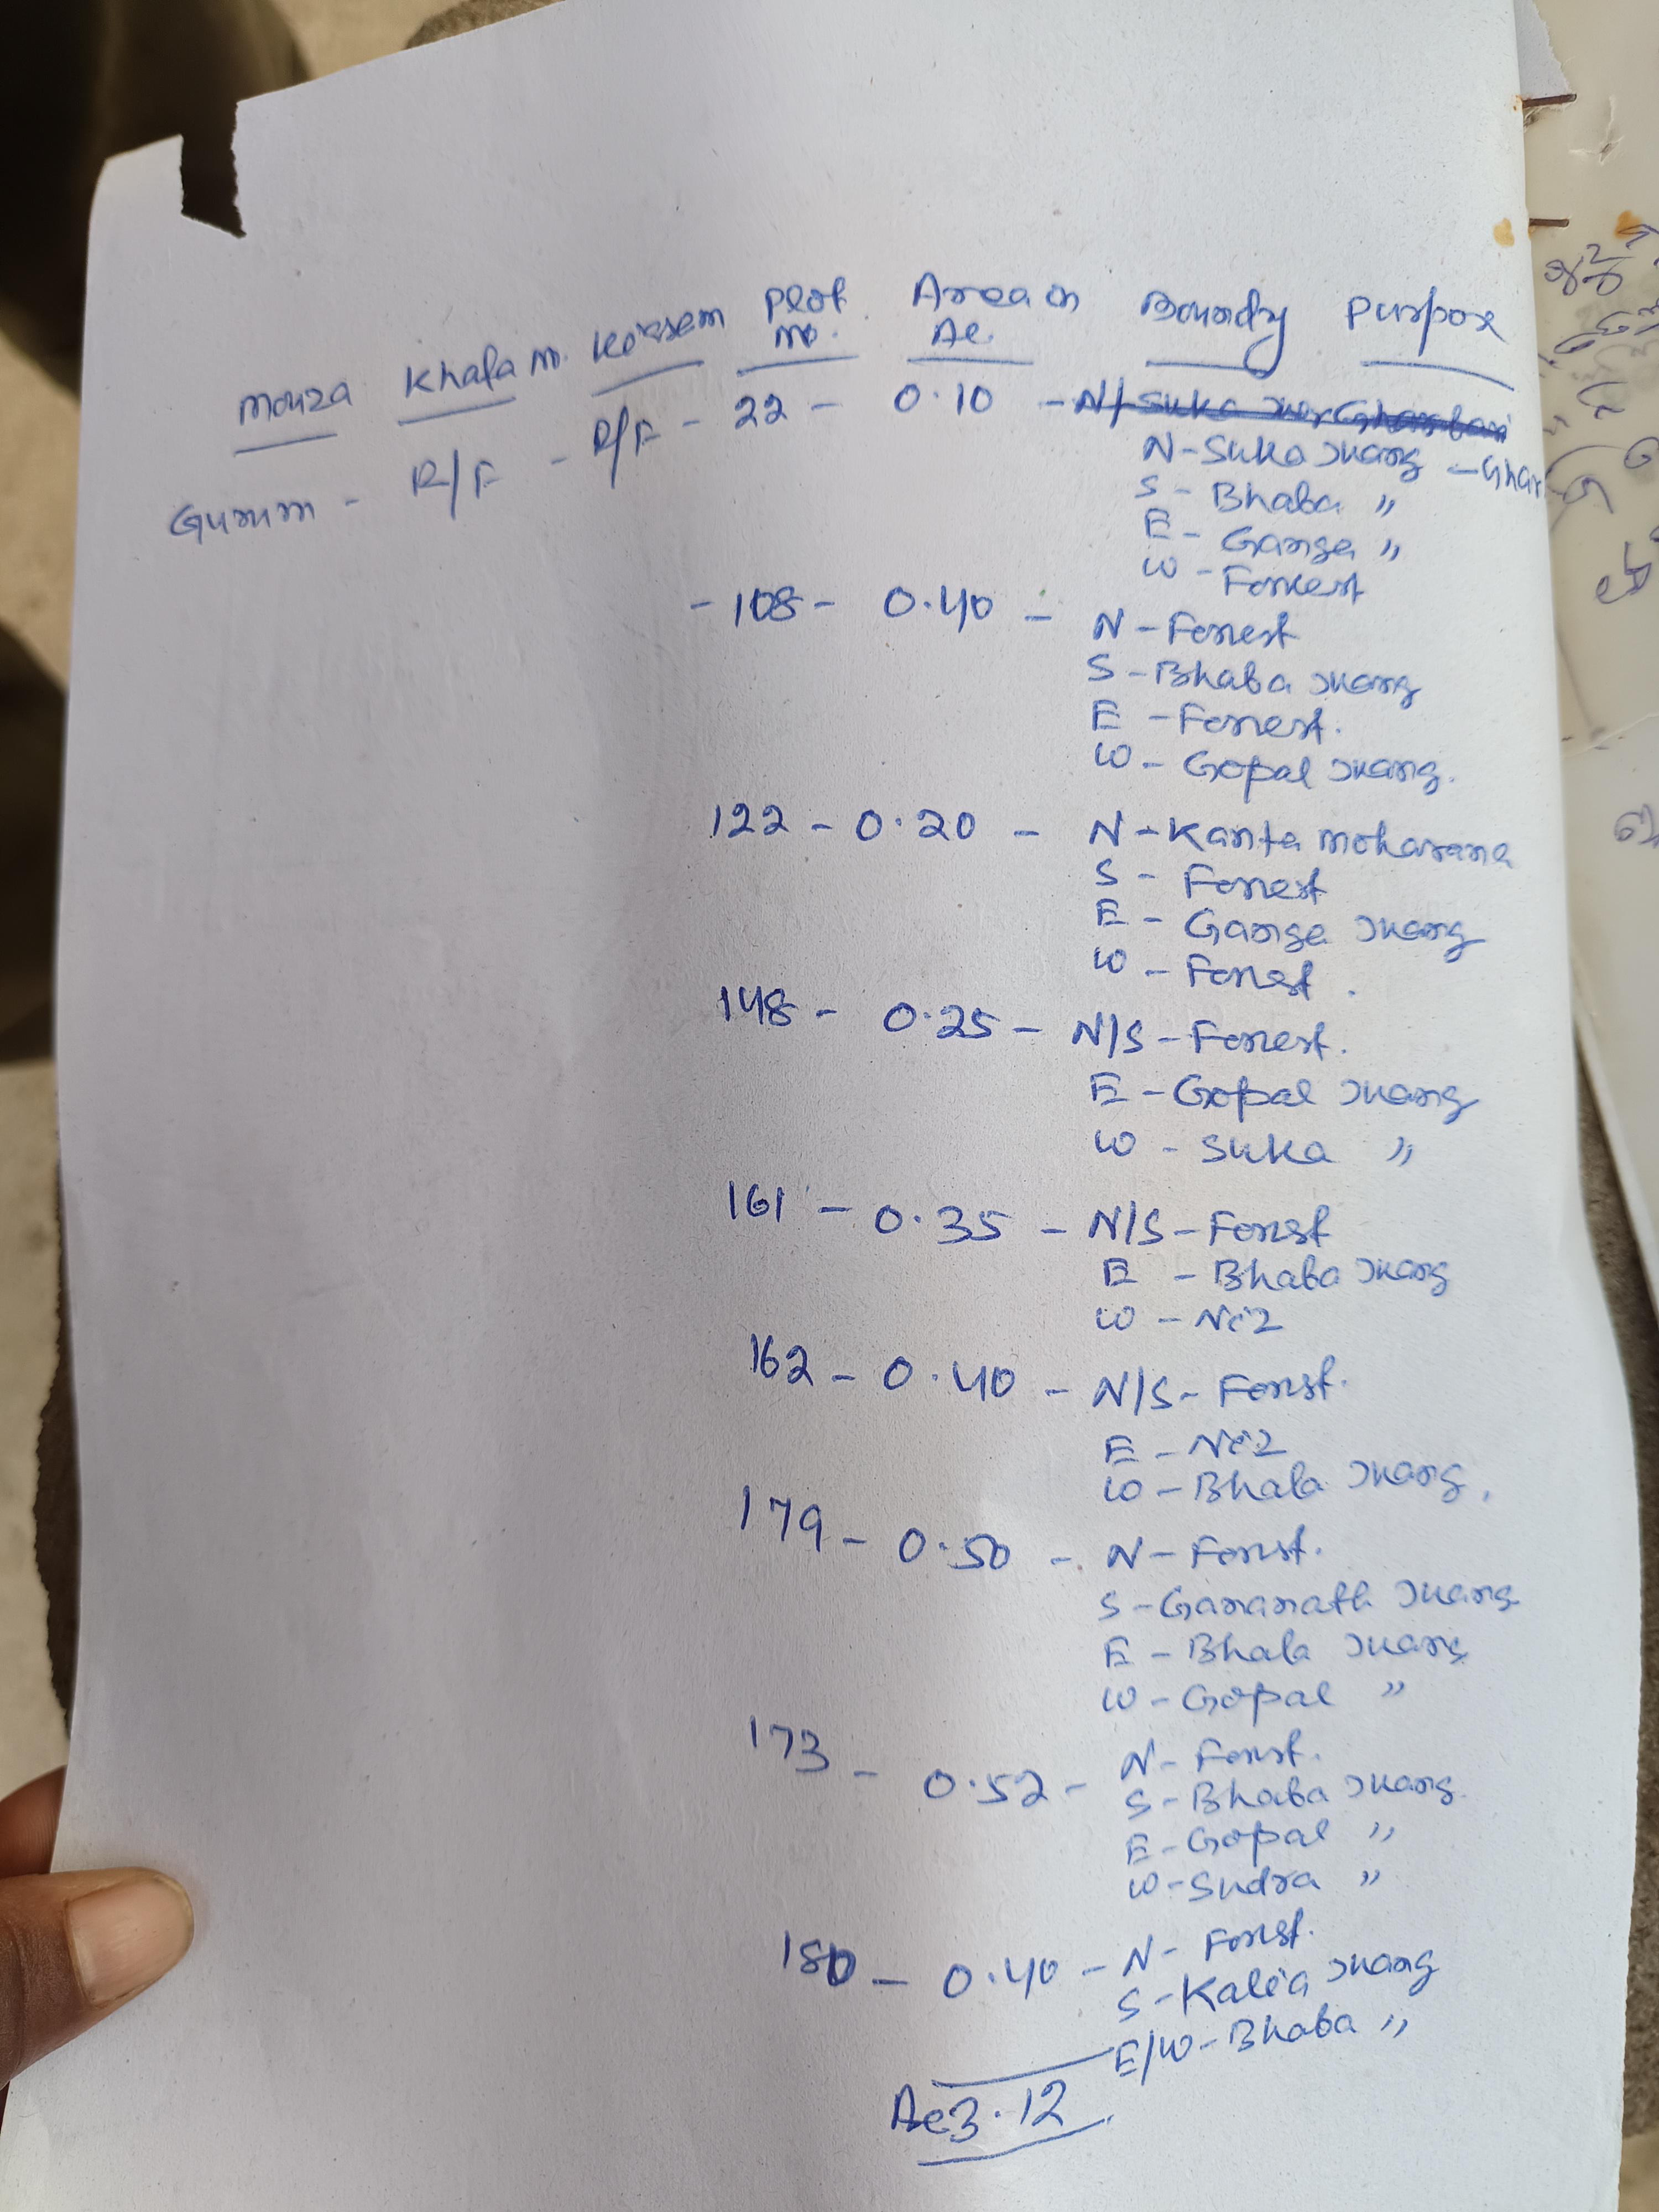 Mouza Khata no. Kissam Plot no. Area in Ac. Boundy Purpose
Gurum - R/F - R/F - 22 - 0.10 - N/
N - Suka Juang - Ghar
S - Bhaba "
E - Ganga "
W - Forrest
- 108 - 0.40 - N - Forrest
S - Bhaba Juang
E - Forrest.
W - Gopal Juang.
122 - 0.20 - N - Kanta Moharana
S - Forrest
E - Ganga Juang
W - Forrest.
148 - 0.25 - N/S - Forrest.
E - Gopal Juang
W - Suka "
161 - 0.35 - N/S - Forest
E - Bhaba Juang
W - Niz
162 - 0.40 - N/S - Forest.
E - Niz
W - Bhaba Juang.
179 - 0.50 - N - Forest.
S - Gananath Juang
E - Bhaba Juang
W - Gopal "
173 - 0.52 - N - Forest.
S - Bhaba Juang.
E - Gopal "
W - Sudra "
180 - 0.40 - N - Forest.
S - Kalia Juang
E/W - Bhaba "
Ac 3.12